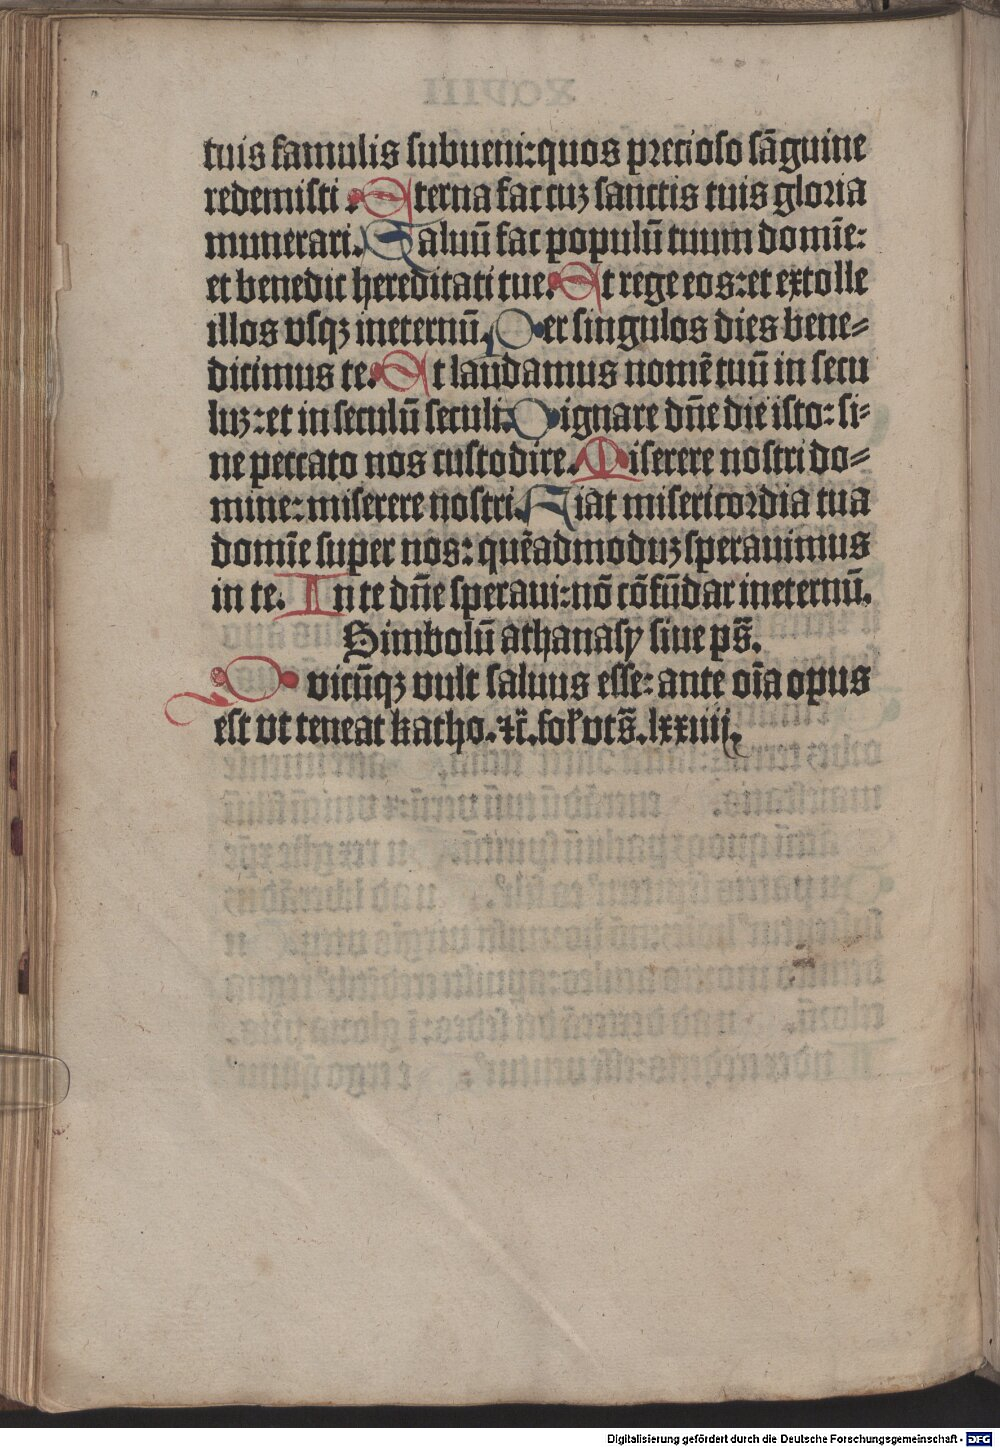 tuis famulis subueni: quos precioso sāguine
redemisti. Eterna fac cuꝫ sanctis tuis gloria
munerari. Saluū fac populū tuum domīe:
et benedic hereditati tue. Et rege eos: et extolle
illos vsqꝫ ineternū. Per singulos dies bene⸗
dicimus te. Et laudamus nomē tuū in secu
luꝫ: et in seculū seculi. Dignare dn̄e die isto: si⸗
ne peccato nos custodire. Miserere nostri do⸗
mine: miserere nostri. Fiat misericordia tua
domīe super nos: quēadmoduꝫ sperauimus
in te. In te dn̄e speraui: nō cōfūdar ineternū.
Simbolū athanasy siue ps̄.
Quicūqꝫ vult saluus esse: ante oīa opus
est vt teneat katho. ⁊c̄. fol' vts̄. lxxiiij.
Digitalisierung gefördert durch die Deutsche Forschungsgemeinschaft - DFG